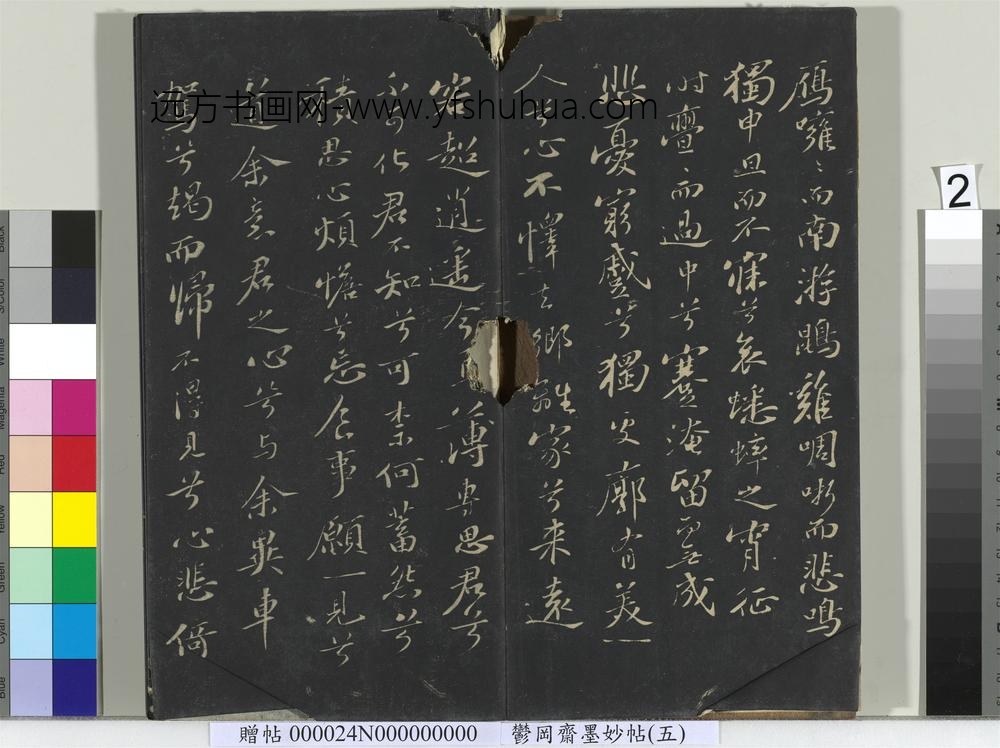 鴈噰〻而南游鵾雞啁哳而悲鳴
獨申旦而不寐兮哀蟋蟀之宵征
時亹〻而過中兮蹇淹留而無成
悲憂窮兮獨處廓有美一
人心不懌去鄉離家兮来遠
客超逍遥今薄專思君兮
不可化君不知兮可柰何蓄怨兮
積思心煩憺兮忘食事願一見兮
道余意君之心兮与余異車
駕兮朅而歸不得見兮心悲倚
远方书画网-www.yfshuhua.com
2
贈帖 000024N000000000 鬱岡齋墨妙帖(五)